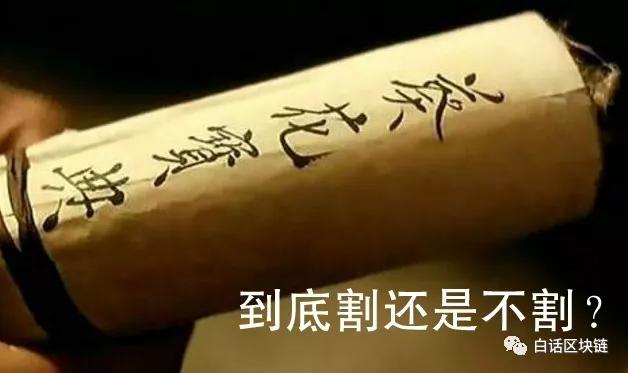 葵花寶典
到底割还是不割？
白话区块链